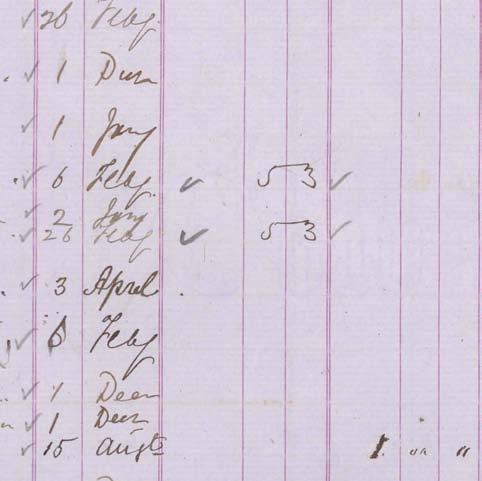 ✓ 26 Feby
✓ 1 Decr
✓ 1 Jany
✓ 6 Feby ✓ 5 3 ✓
✓ 2 Jany
✓ 26 Feby ✓ 5 3 ✓
✓ 3 April
✓ 6 Feby
✓ 1 Decr
✓ 1 Decr
✓ 15 Augt 1 " "